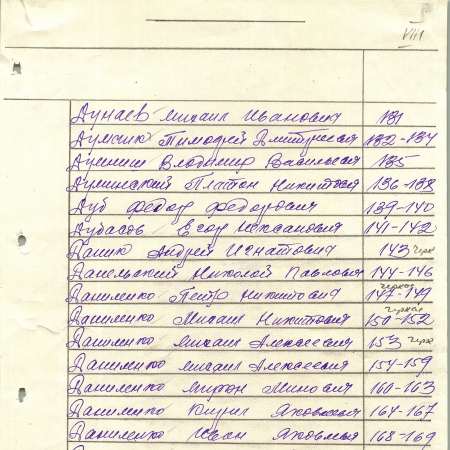 VIII
Дунаев Михаил Иванович 131
Думенко Тимофей Дмитриевич 132-134
Владимир Васильевич 135
Думинский Платон Никитович 136-138
Дуб Федор Федорович 139-140
Дубасов Егор 141-142
Даник Андрей Игнатович 143 черк
Данельский Николай Павлович 144-146
Даниленко Петр Никитович 147-149 черкас
Даниленко Михаил Никитович 150-152 черкас
Даниленко Михаил Алексеевич 153 черк
Даниленко Михаил Алексеевич 154-159
Даниленко Мирон Минович 160-163
Даниленко Кирил Яковлевич 164-167
Даниленко Иван Яковлевич 168-169